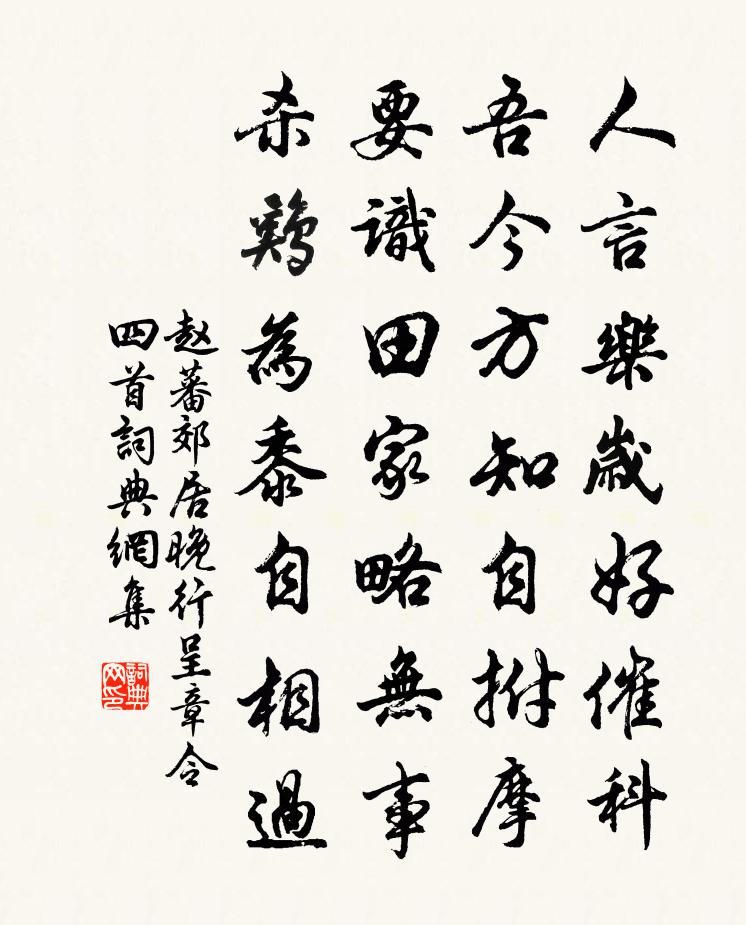 人言樂歲好催科
吾今方知自拊摩
要識田家略無事
杀鶏為黍自相過
赵蕃郊居晚行呈章令
四首詞典網集
詞典網印